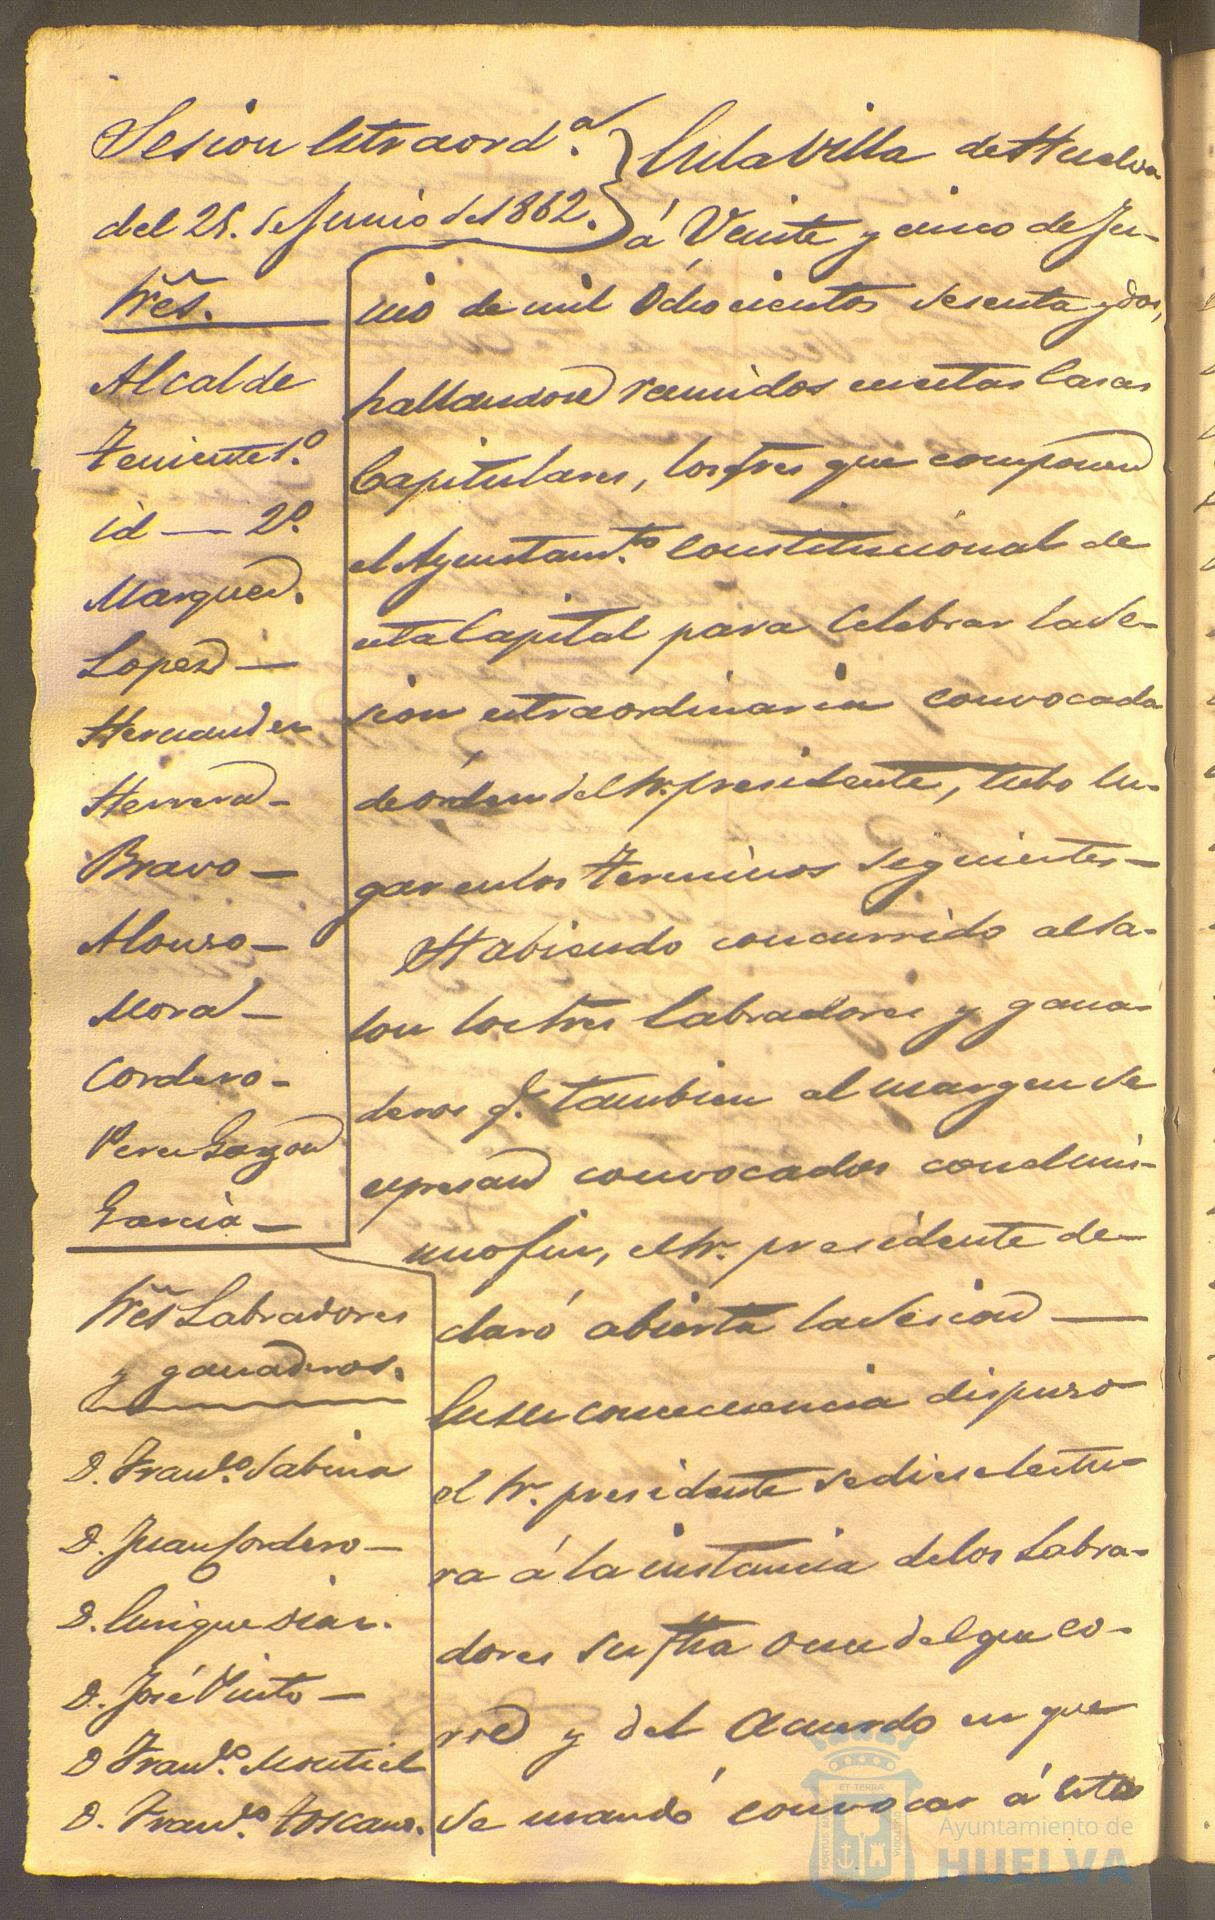 Sesion estraord.ª
del 25. de Junio de 1862.
Sres.
Alcalde
Teniente 1.º
id — 2.º
Marquez.
Lopez —
Hernandez
Herrera —
Bravo —
Alonso —
Mora —
Cordero —
Perez Garzon
Garcia —
Sres Labradores
y ganaderos.
D. Fran.co Sabina
D. Juan Cordero —
D. Enrique Diaz.
D. José Pinto —
D Fran.co Montiel
D. Fran.co Toscano.
En la Villa de Huelva
á Veinte y cinco de Ju-
nio de mil Ochocientos sesenta y dos,
hallandose reunidos en estas Casas
Capitulares, los Sres que componen
el Ayuntam.to Constitucional de
esta Capital para Celebrar la Se-
sion estraordinaria convocada
de órden del Sr. presidente, tubo lu-
gar en los terminos siguientes —
Habiendo concurrido al Sa-
lon los Sres Labradores y gana-
deros q.e tambien al margen se
espresan convocados con el mis-
mo fin, el Sr. presidente de-
claró abierta la Sesion —
En su consecuencia dispuso
el Sr. presidente se diese lectu-
ra á la instancia de los Labra-
dores su fha once del que co-
rre y del Acuerdo en que
se mandó convocar á estos
ET TERRÆ
Ayuntamiento de
HUELVA